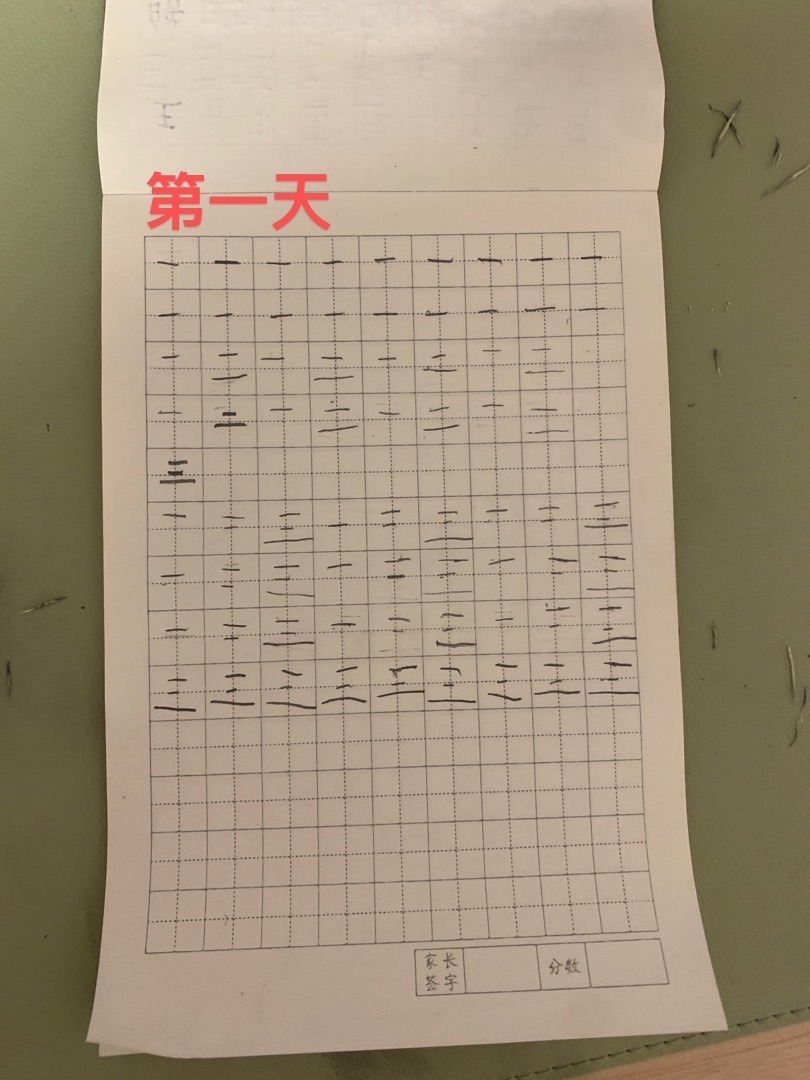 第一天
一一一一一一一一一
一一一一一一一一一
一二一二一二一二
一二一二一二一二
三
一二三一二三一二三
一二三一二三一二三
一二三一二三一二三
三三三三三三三三三
家长签字 分数